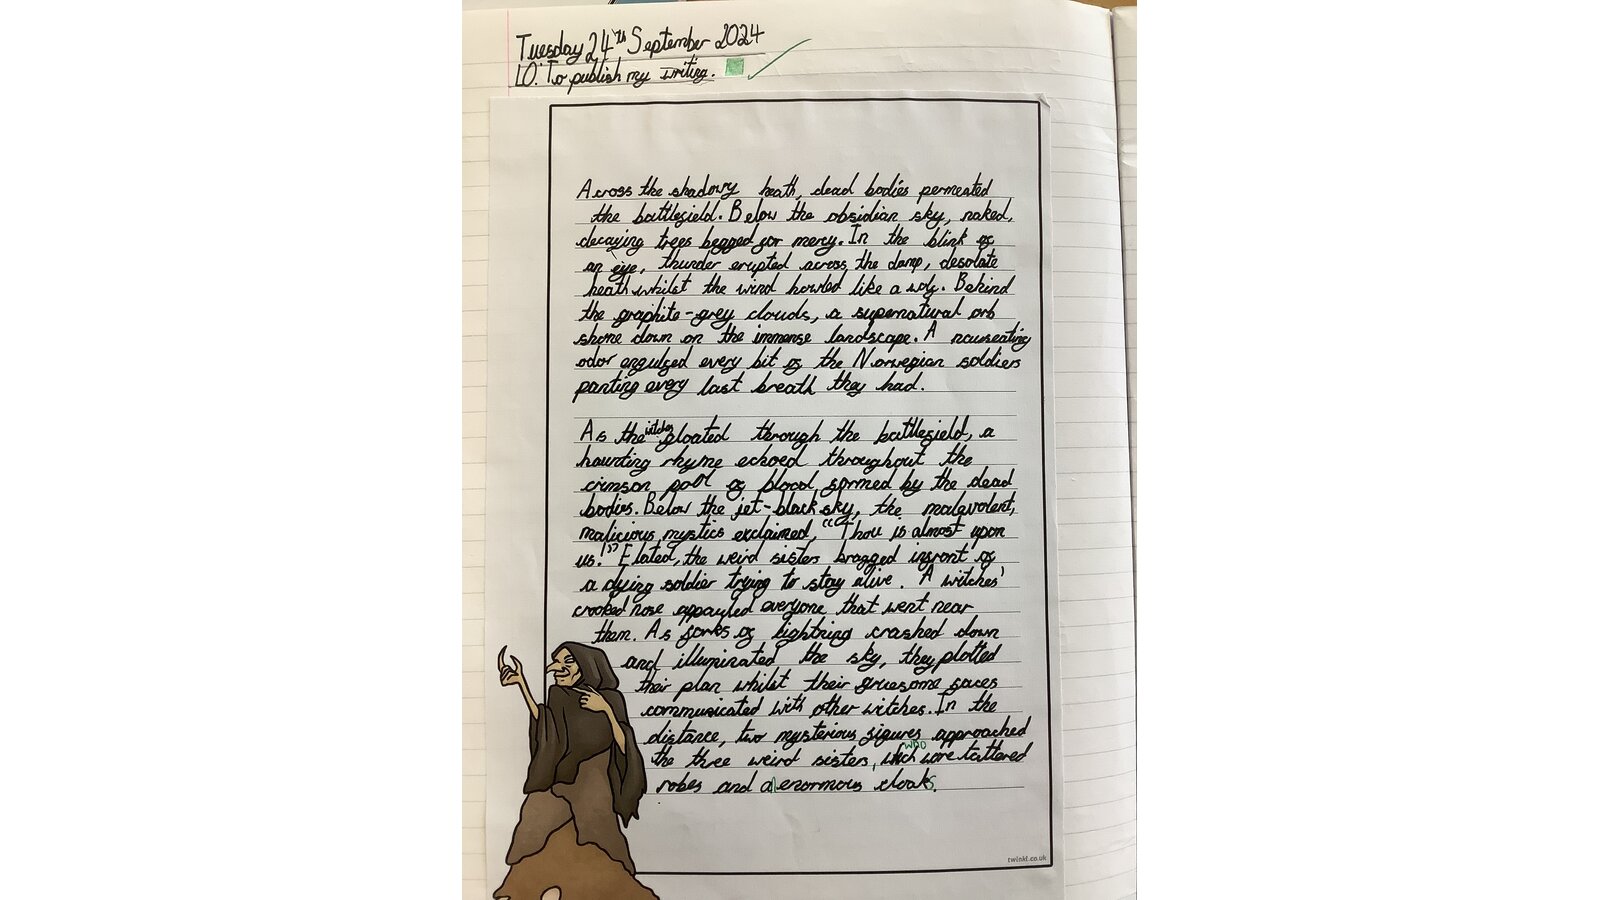 Tuesday 24th September 2024
LO: To publish my writing.
Across the shadowy heath, dead bodies permeated
the battlefield. Below the obsidian sky, naked,
decaying trees begged for mercy. In the blink of
an eye, thunder erupted across the damp, desolate
heath whilst the wind howled like a wolf. Behind
the graphite-grey clouds, a supernatural orb
shone down on the immense landscape. A nauseating
odor engulfed every bit of the Norwegian soldiers
panting every last breath they had.
As the witches gloated through the battlefield, a
haunting rhyme echoed throughout the
crimson pool of blood formed by the dead
bodies. Below the jet-black sky, the malevolent,
malicious mystics exclaimed, "Thou is almost upon
us!" Elated, the weird sisters bragged infront of
a dying soldier trying to stay alive. A witches'
crooked nose appauled everyone that went near
them. As forks of lightning crashed down
and illuminated the sky, they plotted
their plan whilst their gruesome faces
communicated with other witches. In the
distance, two mysterious figures approached
the three weird sisters, who wore tattered
robes and enormous cloaks.
twinkl.co.uk